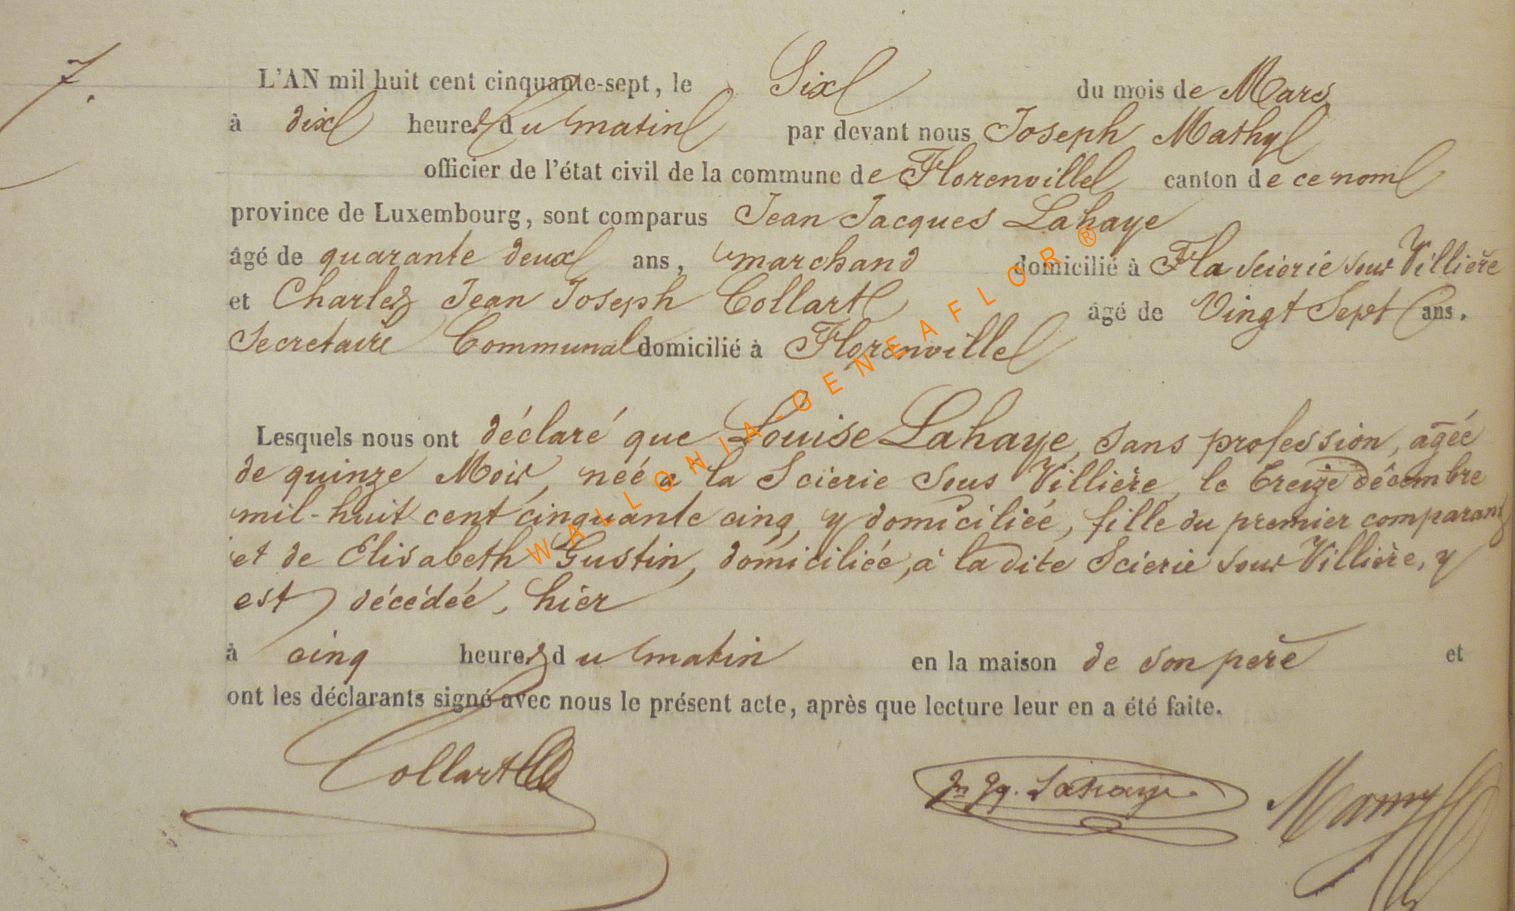 7.
L'AN mil huit cent cinquante-sept, le Six du mois de Mars
à dix heures du matin par devant nous Joseph Mathy
officier de l'état civil de la commune de Florenville canton de ce nom
province de Luxembourg, sont comparus Jean Jacques Lahaye
âgé de quarante deux ans, marchand domicilié à la Scierie sous Villière
et Charles Jean Joseph Collart âgé de Vingt Sept ans.
Secretaire Communal domicilié à Florenville
Lesquels nous ont déclaré que Louise Lahaye, sans profession, agée
de quinze Mois, née a la Scierie sous Villière, le treize décembre
mil-huit cent cinquante cinq, y domiciliée, fille du premier comparant
et de Elisabeth Gustin, domiciliée, à la dite Scierie sous Villière, y
est décédée, hier
à cinq heures du matin en la maison de son père et
ont les déclarants signé avec nous le présent acte, après que lecture leur en a été faite.
Collart Jn Jq. Lahaye
WALLONIA-GENEAFLOR ®